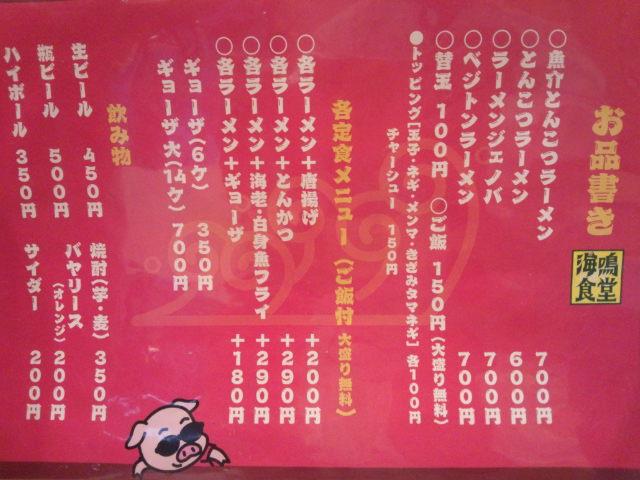 お品書き
海鳴食堂
○魚介とんこつラーメン 700円
○とんこつラーメン 600円
○ラーメンジェノバ 700円
○ベジトンラーメン 700円
○替玉 100円 ○ご飯 150円(大盛り無料)
●トッピング[玉子・ネギ・メンマ・きざみタマネギ] 各100円
チャーシュー 150円
各定食メニュー(ご飯付 大盛り無料)
○各ラーメン+唐揚げ +200円
○各ラーメン+とんかつ +290円
○各ラーメン+海老・白身魚フライ +290円
○各ラーメン+ギョーザ +180円
ギョーザ(6ケ) 350円
ギョーザ大(14ケ) 700円
飲み物
生ビール 450円
瓶ビール 500円
ハイボール 350円
焼酎(芋・麦) 350円
バヤリース(オレンジ) 200円
サイダー 200円